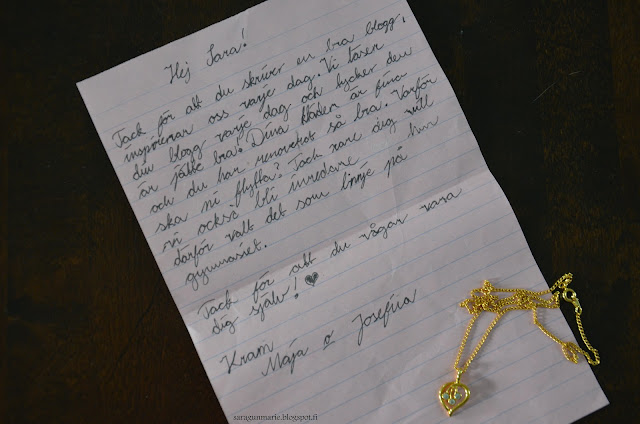 Hej Sara!
Tack för att du skriver en bra blogg,
inspirerar oss varje dag. Vi läser
din blogg varje dag och tycker den
är jätte bra! Dina kläder är fina
och du har renoverat så bra. Varför
ska ni flytta? Tack vare dig vill
vi också bli inredare
därför valt det som linje på
gymnasiet.
Tack för att du vågar vara
dig själv! ♥
Kram
Maja & Josefina
saragunmarie.blogspot.fi